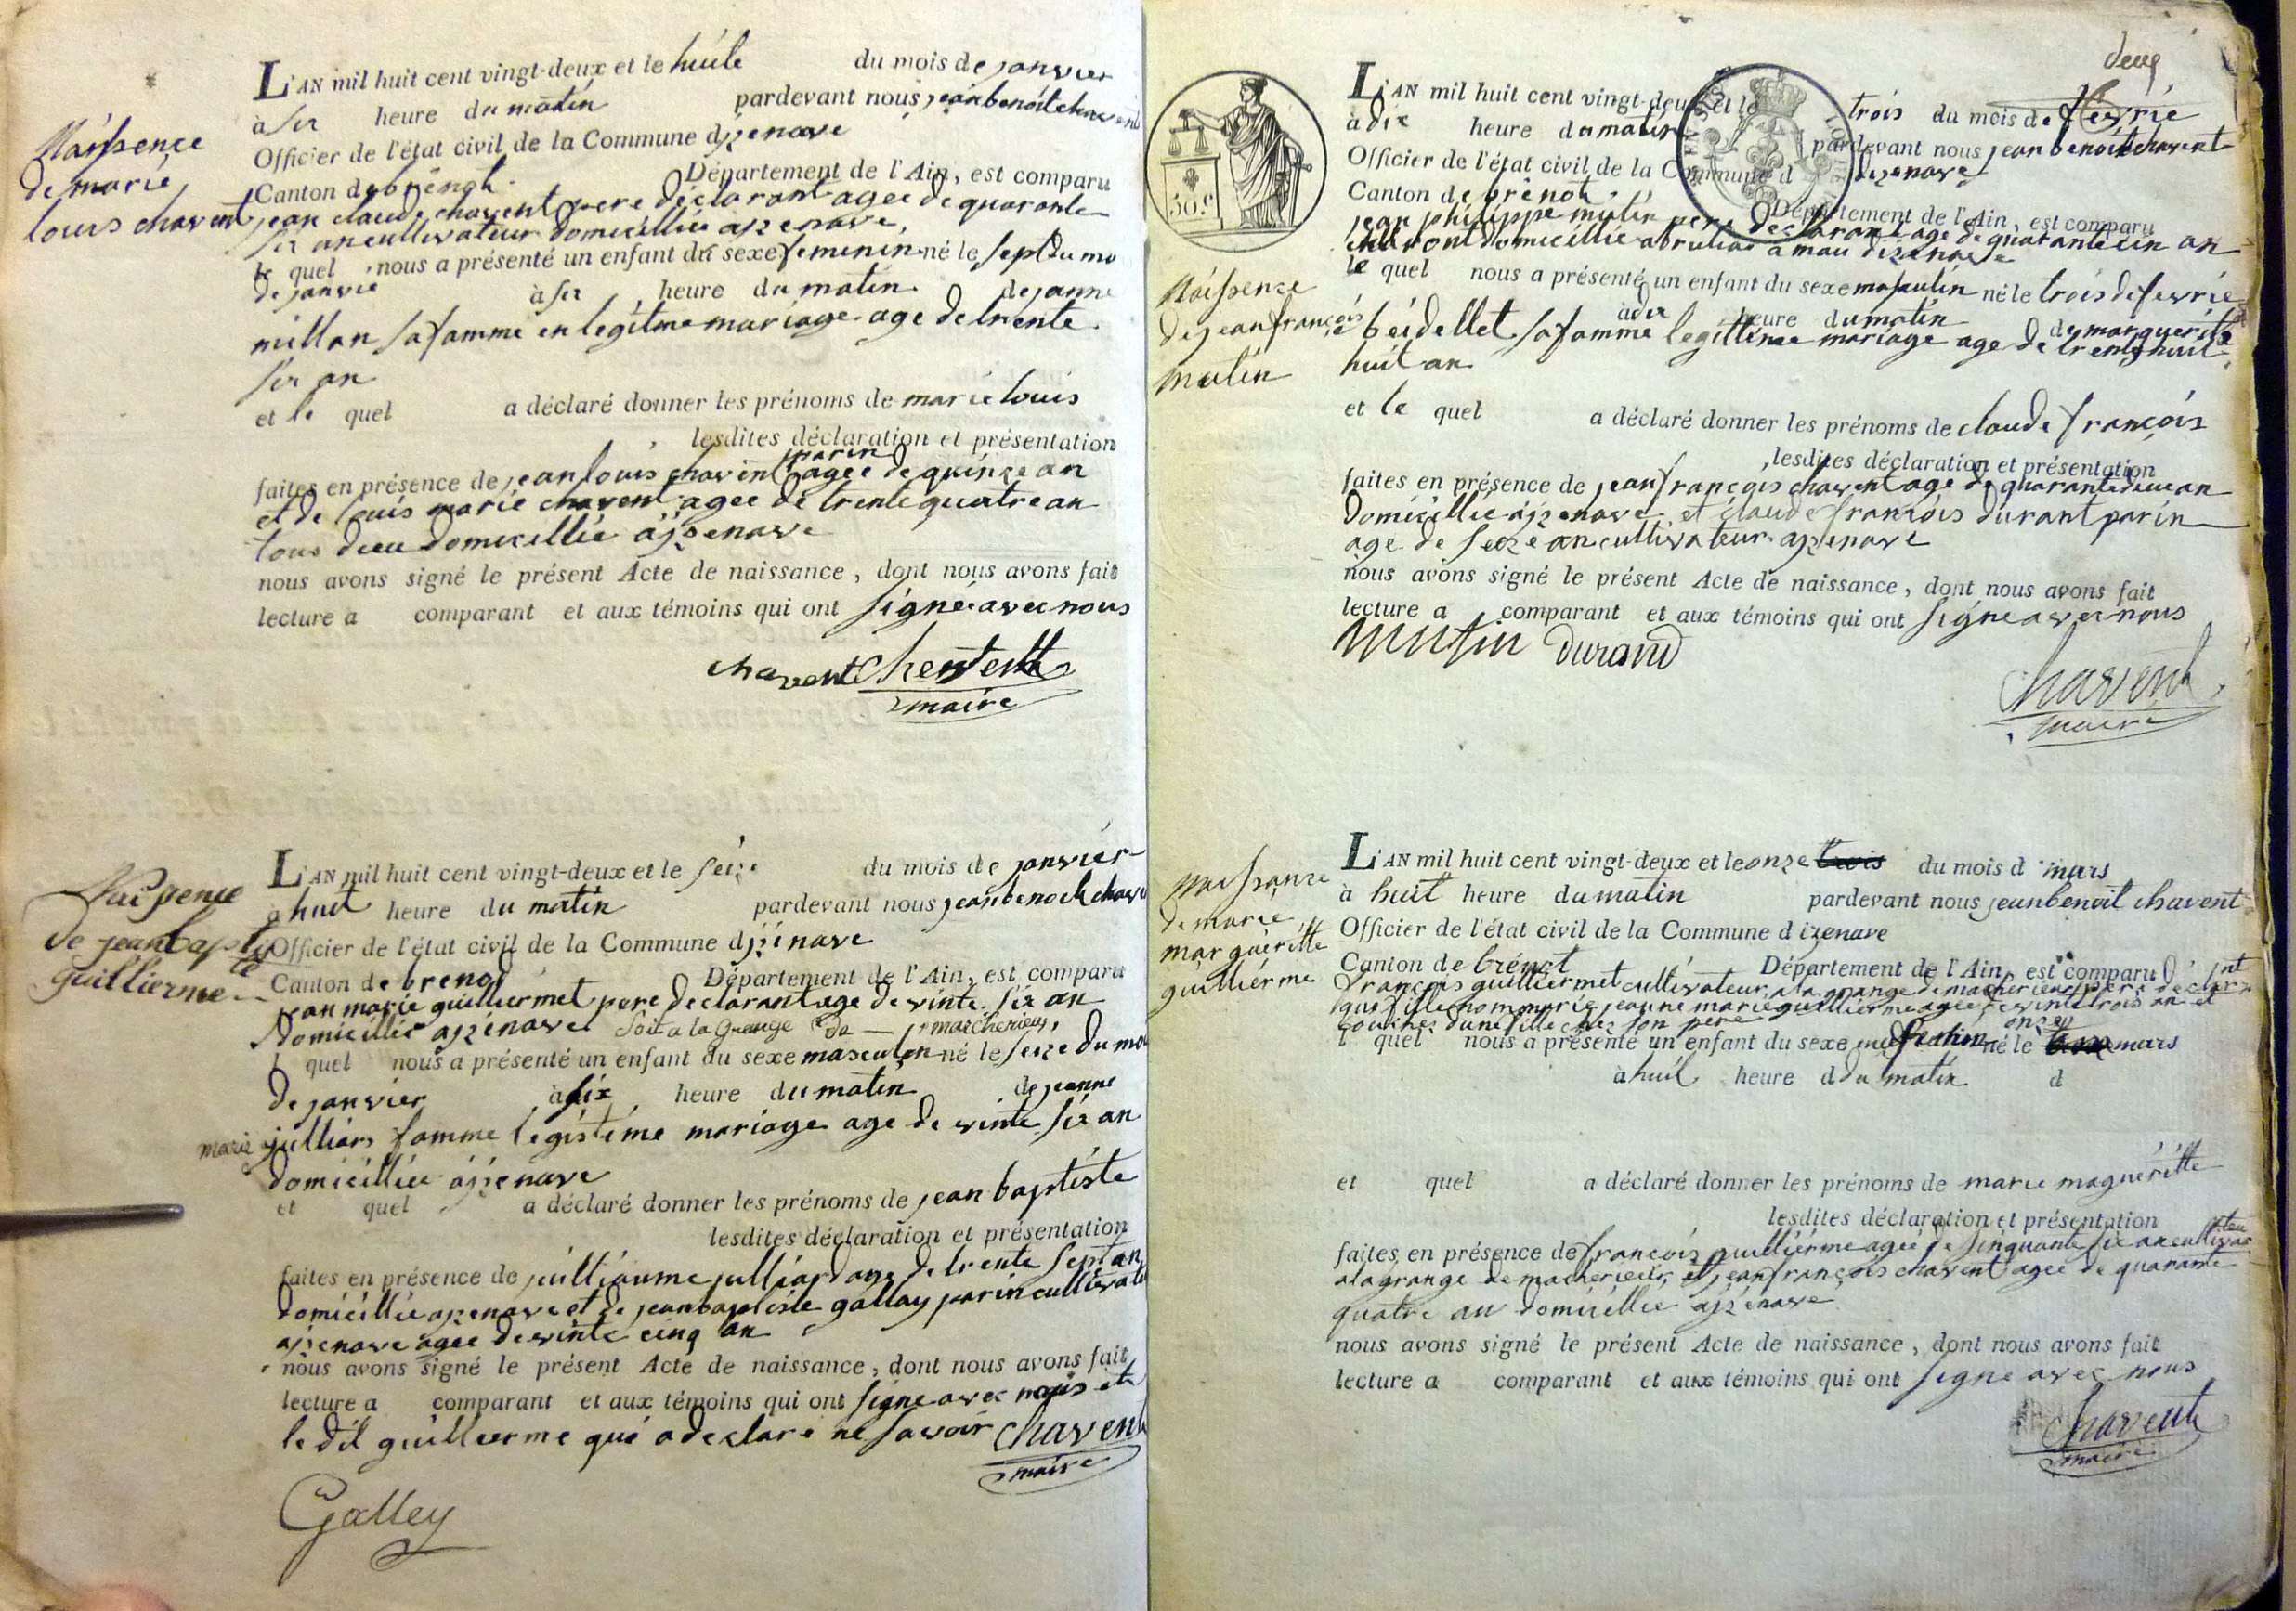 L'AN mil huit cent vingt-deux et le huite du mois de janvier
à six heure du matin pardevant nous jean benoit chavent
Officier de l'état civil de la Commune djzenave
Canton de brénot Département de l'Ain, est comparu
jean claude chavent pere déclarant agee de quarante
six an cultivateur domicillié ajzenave
le quel nous a présenté un enfant du sexe femenin né le sept du mo
de janvié à six heure du matin de janne
millan sa famme en legitme mariage age de trente
six an
et le quel a déclaré donner les prénoms de marie louis
lesdites déclaration et présentation
parin
faites en présence de jean louis chavent agee de quinze an
et de louis marie chavent agee de trente quatre an
tous deeu domicillié ajzenave
nous avons signé le présent Acte de naissance, dont nous avons fait
lecture a comparant et aux témoins qui ont signé avec nous
chavent Chavent
maire
Naissence
de marie
louis chavent
L'AN mil huit cent vingt-deux et le seize du mois de janvier
à huit heure du matin pardevant nous jean benoit chave
Officier de l'état civil de la Commune djzénave
Canton de brenot Département de l'Ain, est comparu
jean marie guilliermet pere declarant age de vinte six an
domicillié ajzénave soit a la Grange de marcherieux
l quel nous a présenté un enfant du sexe masculon né le seize du moi
de janvier à six heure du matin de jeanne
marie julliars famme legistime mariage age de vinte six an
domicilliée ajzénave
et quel a déclaré donner les prénoms de jean baptiste
lesdites déclaration et présentation
faites en présence de juilliaume julliard age de trente sept an
domicillié ajzenave et de jean baptiste gallay parin cultivate
ajzenave agee de vinte cinq an
nous avons signé le présent Acte de naissance, dont nous avons fait
lecture a comparant et aux témoins qui ont signe avec nous et
le dit guillierme qui a declaré ne savoir Chavent
maire
Galley
Naissence
de jean baptiste
guillierme
deux
L'AN mil huit cent vingt-deux et le trois du mois de fevrié
à dix heure du matin pardevant nous jean benoit chavent
Officier de l'état civil de la Commune d dizenave
Canton de brénot Département de l'Ain, est comparu
jean philippe mutin pere déclarant age de quarante cin an
le quel nous a présenté un enfant du sexe masculin né le trois de fevrié
à dix heure du matin de marguerite
beidellet sa famme legittime mariage age de trente huit
huit an
et le quel a déclaré donner les prénoms de claude françois
lesdites déclaration et présentation
faites en présence de jean françois chavent age de quarante deux an
domicillié ajzenave et claude françois durant parin
age de seize an cultivateur ajzenave
nous avons signé le présent Acte de naissance, dont nous avons fait
lecture a comparant et aux témoins qui ont signe avec nous
mutin durand
Chavent
maire
50 c
Naissence
de jean françois
mutin
L'AN mil huit cent vingt-deux et le onze trois du mois d mars
à huit heure du matin pardevant nous jean benoit chavent
Officier de l'état civil de la Commune d izenave
Canton de brénot Département de l'Ain, est comparu
françois guilliermet cultivateur a la grange de macherieux pere declarant
que fille nommé marie jeanne marie guillierme agée de vinte trois an et
couchez d'une fille chez son pere
l quel nous a présenté un enfant du sexe né le onze mars
à huit heure d du matin d
et quel a déclaré donner les prénoms de marie maguéritte
lesdites déclaration et présentation
faites en présence de françois guillierme agée de sinquante six an cultivateu
a la grange de macherieux et jean françois chavent agee de quarante
quatre an domicillié ajzénave
nous avons signé le présent Acte de naissance, dont nous avons fait
lecture a comparant et aux témoins qui ont signe avec nous
Chavent
maire
Naissance
de marie
marguéritte
guillierme